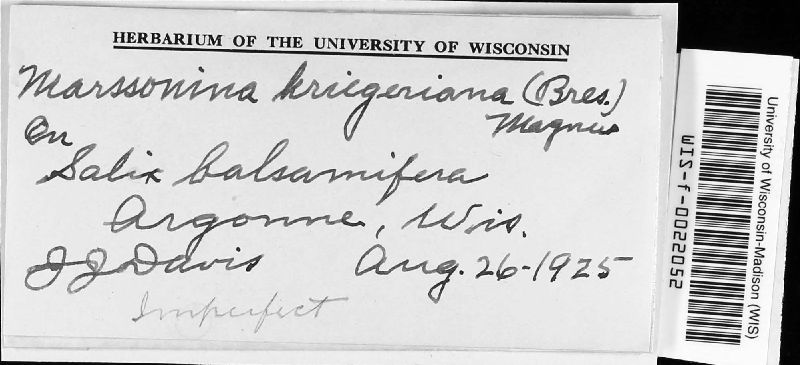 HERBARIUM OF THE UNIVERSITY OF WISCONSIN
Marssonina kriegeriana (Bres.)
Magnus
On
Salix balsamifera
Argonne, Wis.
JJDavis Aug. 26-1925
Imperfect
University of Wisconsin-Madison (WIS)
WIS-f-0022052